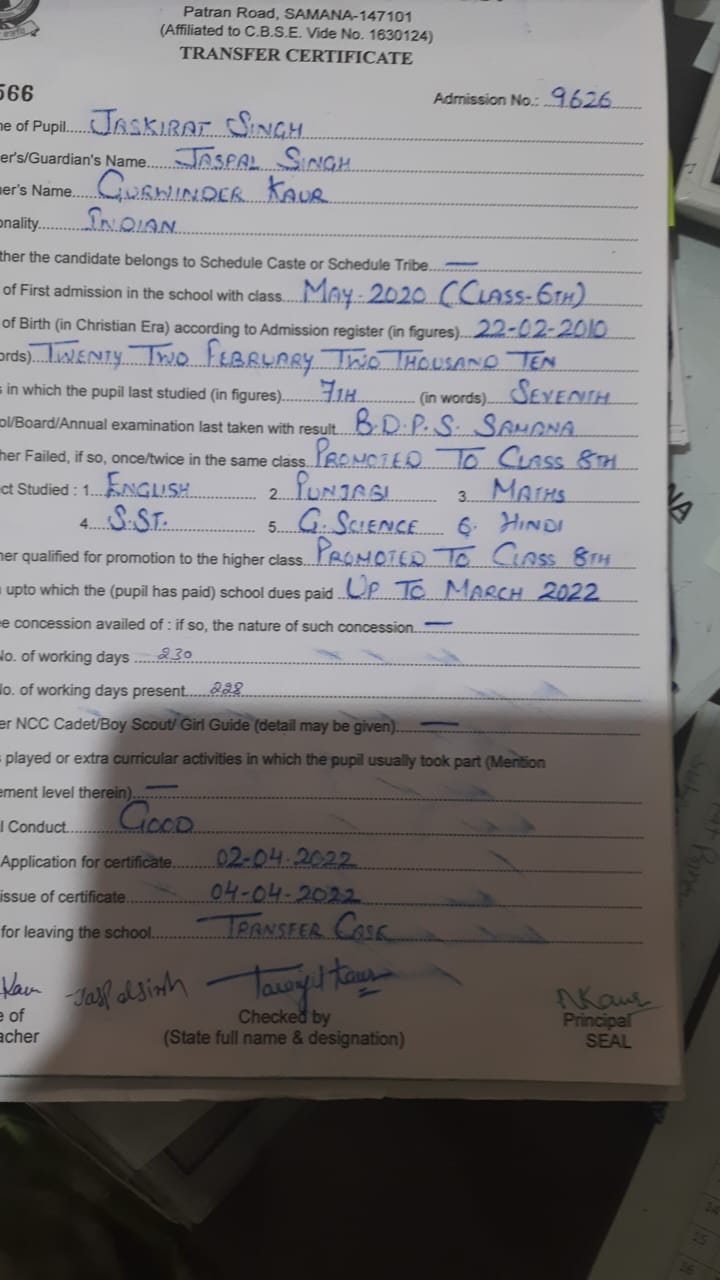 Patran Road, SAMANA-147101
(Affiliated to C.B.S.E. Vide No. 1630124)
TRANSFER CERTIFICATE
566
Admission No.: 9626
ne of Pupil JASKIRAT SINGH
er's/Guardian's Name JASPAL SINGH
ner's Name GURWINDER KAUR
onality INDIAN
ther the candidate belongs to Schedule Caste or Schedule Tribe —
of First admission in the school with class MAY-2020 (CLASS-6TH)
of Birth (in Christian Era) according to Admission register (in figures) 22-02-2010
ords) TWENTY TWO FEBRUARY TWO THOUSAND TEN
in which the pupil last studied (in figures) 7TH (in words) SEVENTH
ol/Board/Annual examination last taken with result B.D.P.S. SAMANA
her Failed, if so, once/twice in the same class PROMOTED TO CLASS 8TH
ct Studied : 1. ENGLISH 2. PUNJABI 3. MATHS
4. S.ST. 5. G.SCIENCE 6. HINDI
her qualified for promotion to the higher class PROMOTED TO CLASS 8TH
upto which the (pupil has paid) school dues paid UP TO MARCH 2022
e concession availed of : if so, the nature of such concession —
No. of working days 230
No. of working days present 228
er NCC Cadet/Boy Scout/ Girl Guide (detail may be given) —
played or extra curricular activities in which the pupil usually took part (Mention
ement level therein) —
l Conduct GOOD
Application for certificate 02-04-2022
issue of certificate 04-04-2022
for leaving the school TRANSFER CASE
Kaur Jaspalsinh Kaur NKaur
e of Checked by Principal
acher (State full name & designation) SEAL